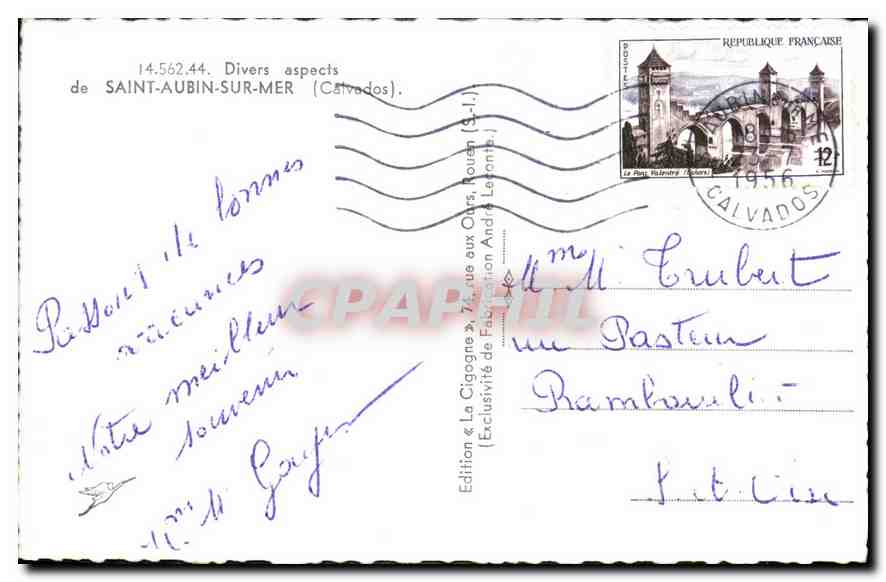 14.562.44. Divers aspects
de SAINT-AUBIN-SUR-MER (Calvados).
Passons de bonnes
vacances
Notre meilleur
souvenir
Mme M
Edition « La Cigogne », 74, rue aux Ours, Rouen (S.-I.)
(Exclusivité de Fabrication André Leconte.)
CPAPHIL
POSTES
REPUBLIQUE FRANÇAISE
12F
Le Pont Valentré (Cahors)
1956
CALVADOS
Mme M Trubert
rue Pasteur
Rambouillet
S. et Oise